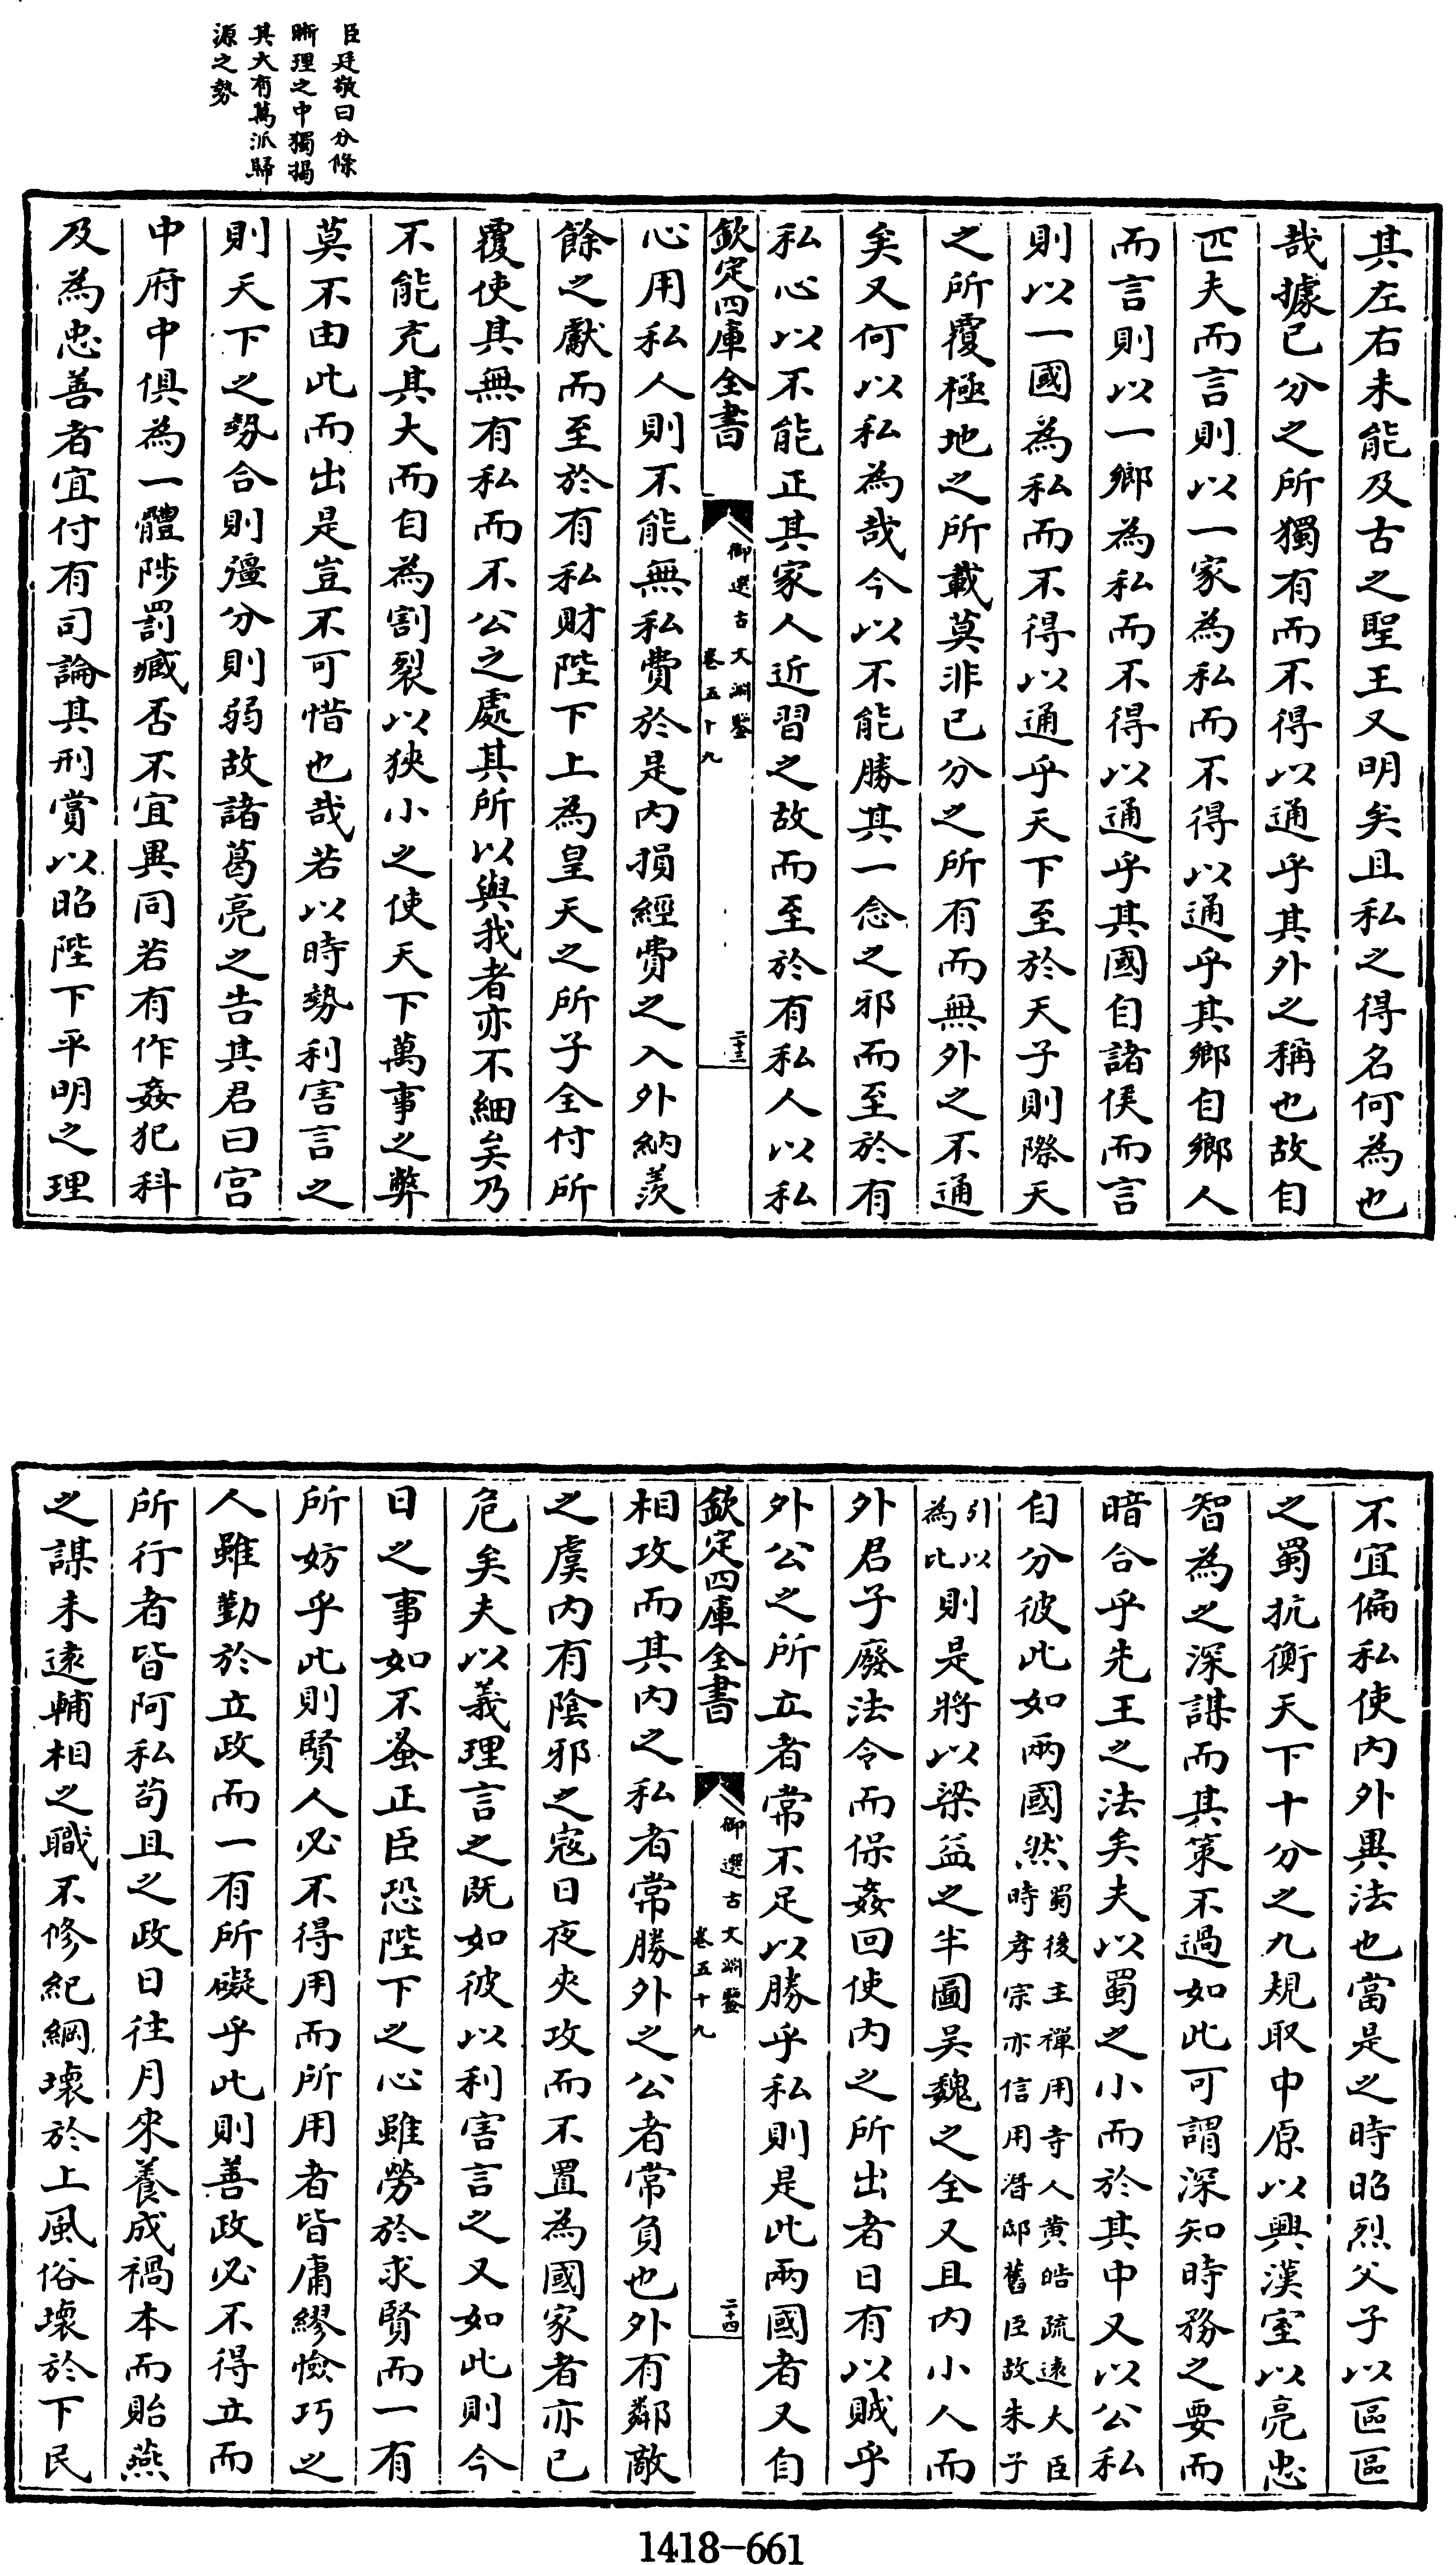 臣廷敬曰分條
晰理之中獨揭
其大有萬派歸
源之勢
其左右未能及古之聖王又明矣且私之得名何為也
哉據已分之所獨有而不得以通乎其外之稱也故自
匹夫而言則以一家為私而不得以通乎其鄉自鄉人
而言則以一鄉為私而不得以通乎其國自諸侯而言
則以一國為私而不得以通乎天下至於天子則際天
之所覆極地之所載莫非已分之所有而無外之不通
矣又何以私為哉今以不能勝其一念之邪而至於有
私心以不能正其家人近習之故而至於有私人以私
欽定四庫全書
御選古文淵鑒
卷五十九
二十三
心用私人則不能無私費於是內損經費之入外納羨
餘之獻而至於有私財陛下上為皇天之所子全付所
覆使其無有私而不公之處其所以與我者亦不細矣乃
不能充其大而自為割裂以狹小之使天下萬事之弊
莫不由此而出是豈不可惜也哉若以時勢利害言之
則天下之勢合則彊分則弱故諸葛亮之告其君曰宮
中府中俱為一體陟罰臧否不宜異同若有作姦犯科
及為忠善者宜付有司論其刑賞以昭陛下平明之理
不宜偏私使內外異法也當是之時昭烈父子以區區
之蜀抗衡天下十分之九規取中原以興漢室以亮忠
智為之深謀而其策不過如此可謂深知時務之要而
暗合乎先王之法矣夫以蜀之小而於其中又以公私
自分彼此如兩國然蜀後主禪用寺人黄皓疏遠大臣
時孝宗亦信用潛邸舊臣故朱子
引以
為比則是將以梁益之半圖吳魏之全又且內小人而
外君子廢法令而保姦回使內之所出者日有以賊乎
外公之所立者常不足以勝乎私則是此兩國者又自
欽定四庫全書
御選古文淵鑒
卷五十九
二十四
相攻而其內之私者常勝外之公者常負也外有鄰敵
之虞內有陰邪之寇日夜夾攻而不置為國家者亦已
危矣夫以義理言之既如彼以利害言之又如此則今
日之事如不蚤正臣恐陛下之心雖勞於求賢而一有
所妨乎此則賢人必不得用而所用者皆庸繆憸巧之
人雖勤於立政而一有所礙乎此則善政必不得立而
所行者皆阿私苟且之政日往月來養成禍本而貽燕
之謀未遠輔相之職不修紀綱壞於上風俗壞於下民
1418-661